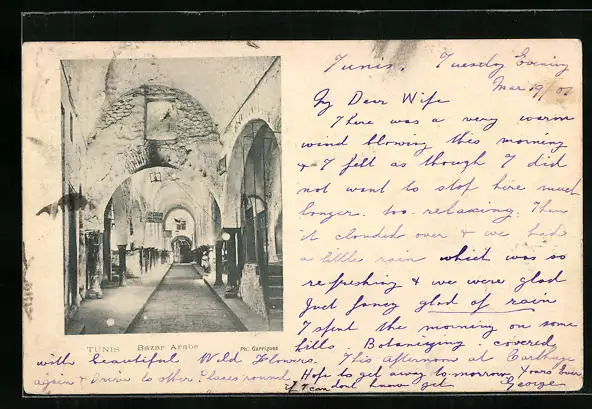 Tunis. Tuesday Evening
Mar 19/
My Dear Wife
There was a very warm
wind blowing this morning
& I felt as though I did
not want to stop here much
longer. too relaxing. Then
it clouded over & we had
a little rain which was so
refreshing & we were glad
Just fancy glad of rain
I spent the morning on some
hills. Botanizing. covered
with beautiful Wild Flowers. This afternoon at Carthage
again & Drive to other Places round. Hope to get away to-morrow Yours Ever
if I can don't know yet George
TUNIS Bazar Arabe Ph. Garrigues